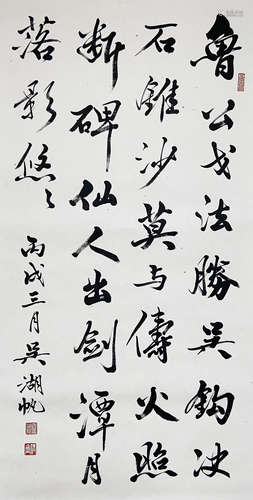 魯公戈法勝吳鈎決
石錐沙莫与儔火照
断碑仙人出劍潭月
落影悠〻
丙戌三月吳湖帆